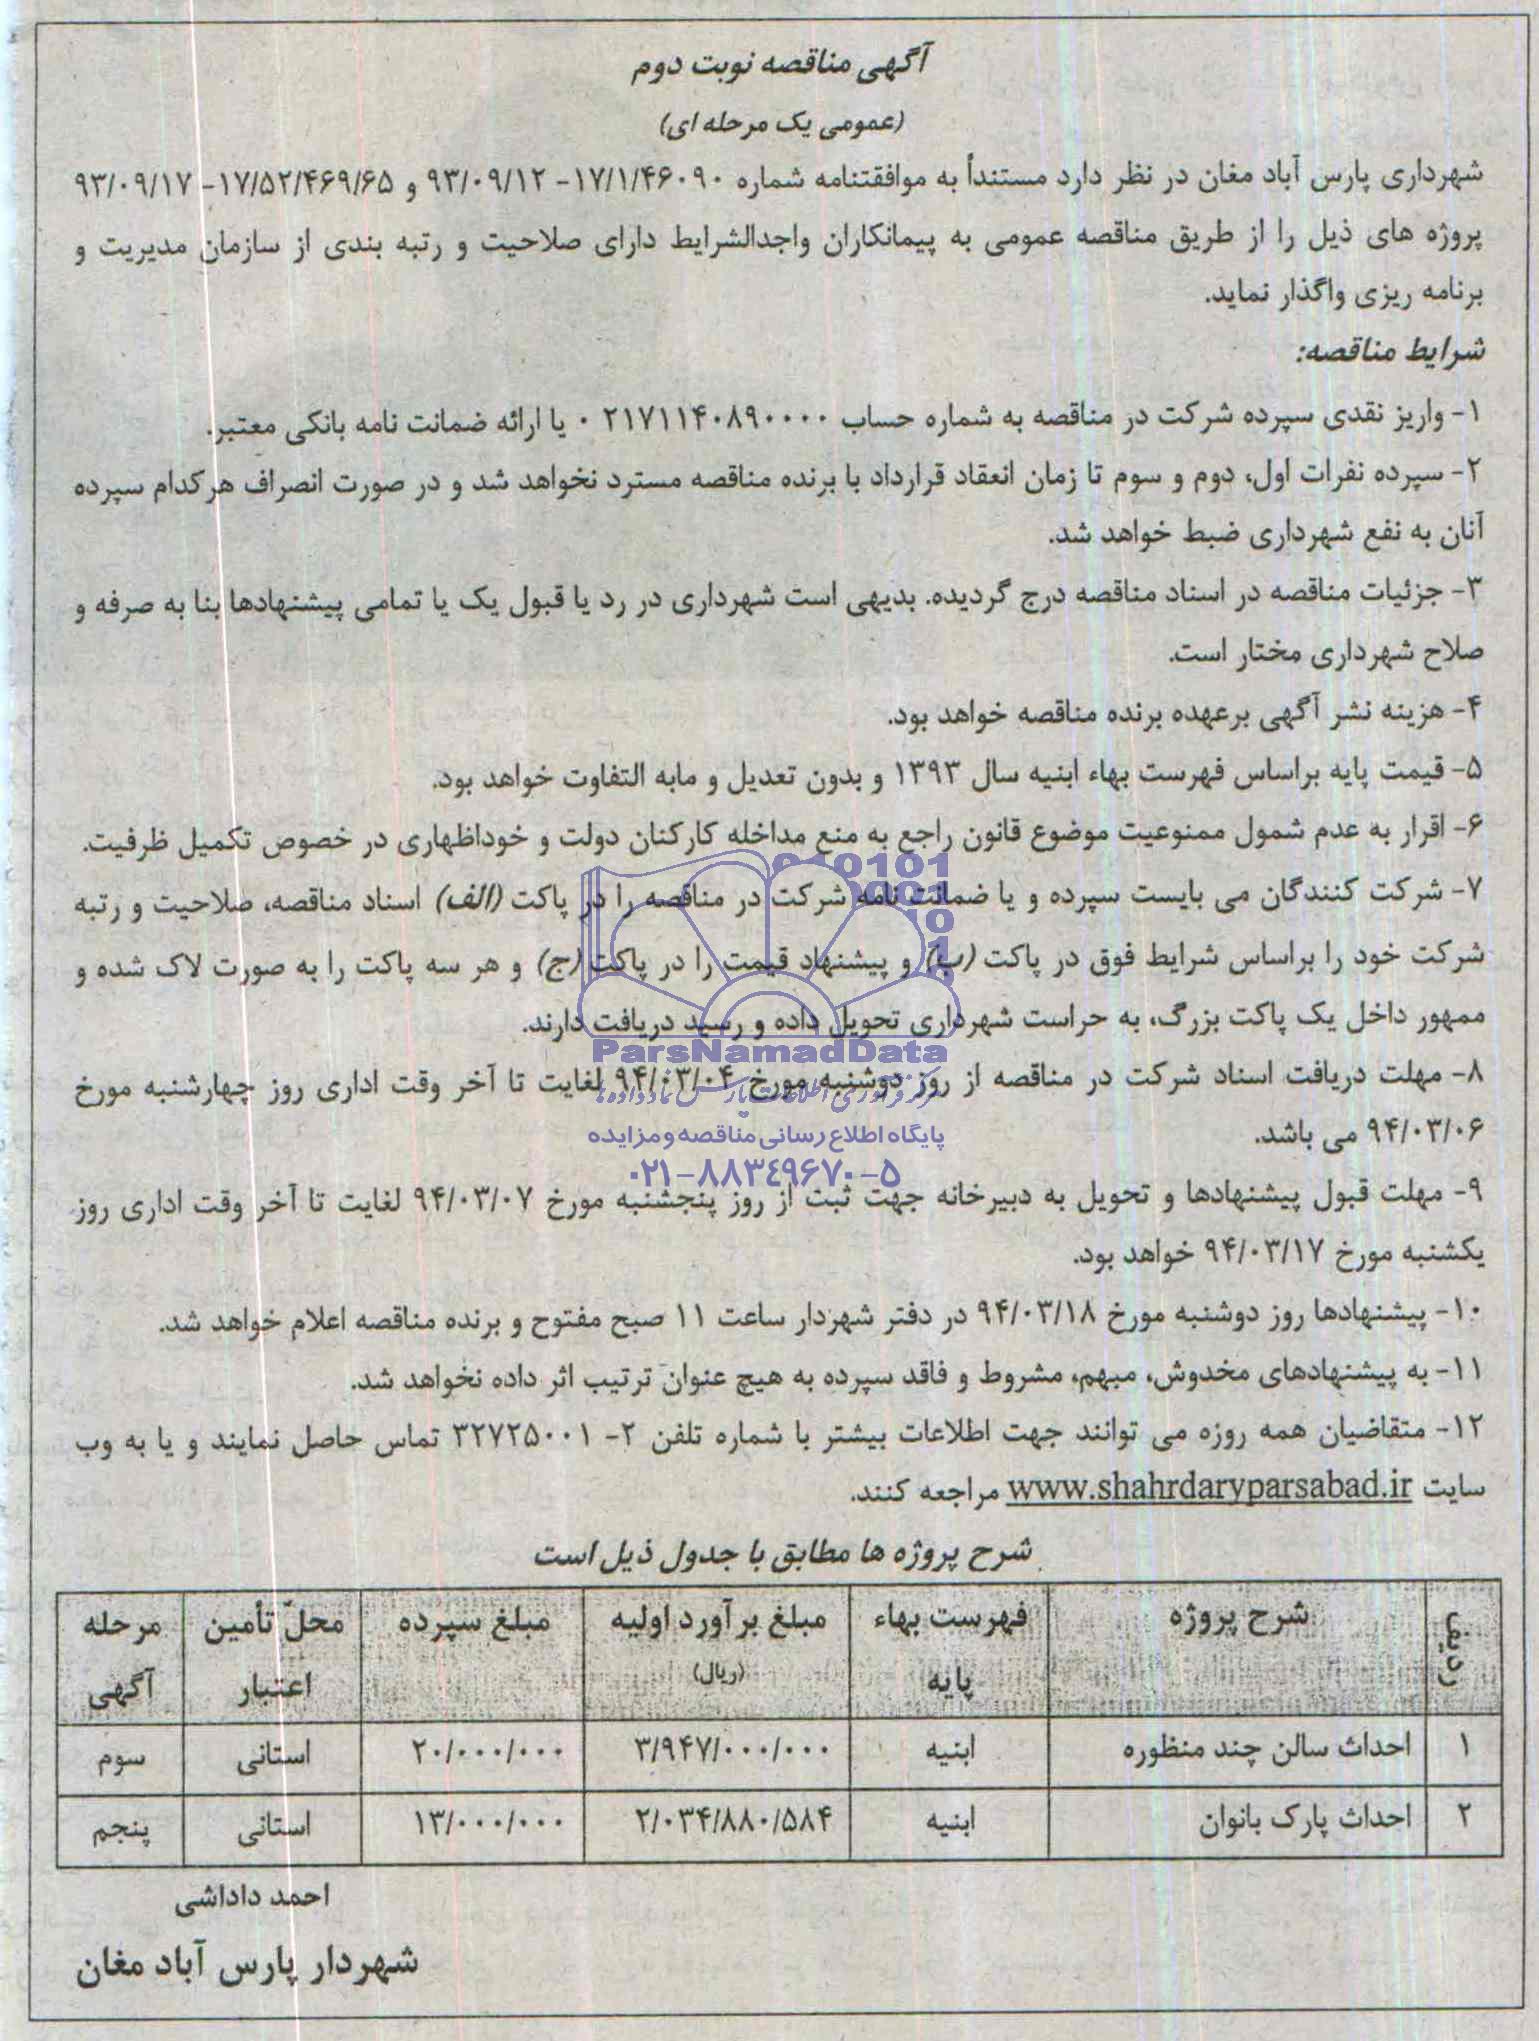 آگهی مناقصه نوبت دوم
(عمومی یک مرحله ای)
شهرداری پارس آباد مغان در نظر دارد مستنداً به موافقتنامه شماره ۱۷/۱/۴۶۰۹۰- ۹۳/۰۹/۱۲ و ۱۷/۵۲/۴۶۹/۶۵- ۹۳/۰۹/۱۷
پروژه های ذیل را از طریق مناقصه عمومی به پیمانکاران واجدالشرایط دارای صلاحیت و رتبه بندی از سازمان مدیریت و
برنامه ریزی واگذار نماید.
شرایط مناقصه:
۱- واریز نقدی سپرده شرکت در مناقصه به شماره حساب ۲۱۷۱۱۴۰۸۹۰۰۰۰ ۰ یا ارائه ضمانت نامه بانکی معتبر.
۲- سپرده نفرات اول، دوم و سوم تا زمان انعقاد قرارداد با برنده مناقصه مسترد نخواهد شد و در صورت انصراف هرکدام سپرده
آنان به نفع شهرداری ضبط خواهد شد.
۳- جزئیات مناقصه در اسناد مناقصه درج گردیده. بدیهی است شهرداری در رد یا قبول یک یا تمامی پیشنهادها بنا به صرفه و
صلاح شهرداری مختار است.
۴- هزینه نشر آگهی برعهده برنده مناقصه خواهد بود.
۵- قیمت پایه براساس فهرست بهاء ابنیه سال ۱۳۹۳ و بدون تعدیل و مابه التفاوت خواهد بود.
۶- اقرار به عدم شمول ممنوعیت موضوع قانون راجع به منع مداخله کارکنان دولت و خوداظهاری در خصوص تکمیل ظرفیت.
۷- شرکت کنندگان می بایست سپرده و یا ضمانت نامه شرکت در مناقصه را در پاکت (الف) اسناد مناقصه، صلاحیت و رتبه
شرکت خود را براساس شرایط فوق در پاکت (ب) و پیشنهاد قیمت را در پاکت (ج) و هر سه پاکت را به صورت لاک شده و
ممهور داخل یک پاکت بزرگ، به حراست شهرداری تحویل داده و رسید دریافت دارند.
ParsNamadData
۸- مهلت دریافت اسناد شرکت در مناقصه از روز دوشنبه مورخ ۹۴/۰۳/۰۴ لغایت تا آخر وقت اداری روز چهارشنبه مورخ
مرکز فرآوری اطلاعات پارس نماد داده ها
۹۴/۰۳/۰۶ می باشد.
پایگاه اطلاع رسانی مناقصه و مزایده
۰۲۱-۸۸۳۴۹۶۷۰-۵
۹- مهلت قبول پیشنهادها و تحویل به دبیرخانه جهت ثبت از روز پنجشنبه مورخ ۹۴/۰۳/۰۷ لغایت تا آخر وقت اداری روز
یکشنبه مورخ ۹۴/۰۳/۱۷ خواهد بود.
۱۰- پیشنهادها روز دوشنبه مورخ ۹۴/۰۳/۱۸ در دفتر شهردار ساعت ۱۱ صبح مفتوح و برنده مناقصه اعلام خواهد شد.
۱۱- به پیشنهادهای مخدوش، مبهم، مشروط و فاقد سپرده به هیچ عنوان ترتیب اثر داده نخواهد شد.
۱۲- متقاضیان همه روزه می توانند جهت اطلاعات بیشتر با شماره تلفن ۲- ۳۲۷۲۵۰۰۱ تماس حاصل نمایند و یا به وب
سایت www.shahrdaryparsabad.ir مراجعه کنند.
شرح پروژه ها مطابق با جدول ذیل است
ردیف شرح پروژه فهرست بهاء پایه مبلغ برآورد اولیه (ریال) مبلغ سپرده محلّ تأمین اعتبار مرحله آگهی
۱ احداث سالن چند منظوره ابنیه ۳/۹۴۷/۰۰۰/۰۰۰ ۲۰/۰۰۰/۰۰۰ استانی سوم
۲ احداث پارک بانوان ابنیه ۲/۰۳۴/۸۸۰/۵۸۴ ۱۳/۰۰۰/۰۰۰ استانی پنجم
احمد داداشی
شهردار پارس آباد مغان